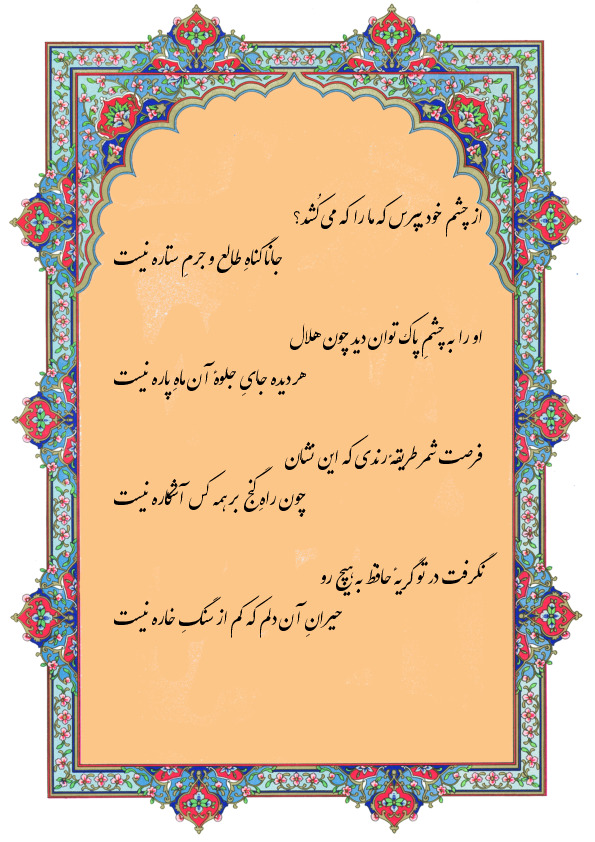 از چشم خود بپرس که ما را که می‌کُشد؟
جانا گناهِ طالع و جرمِ ستاره نیست
او را به چشمِ پاک توان دید چون هلال
هر دیده جایِ جلوهٔ آن ماهِ پاره نیست
فرصت شمر طریقهٔ رندی که این نشان
چون راهِ گنج بر همه کس آشکاره نیست
نگرفت در تو گریهٔ حافظ به هیچ رو
حیرانِ آن دلم که کم از سنگِ خاره نیست